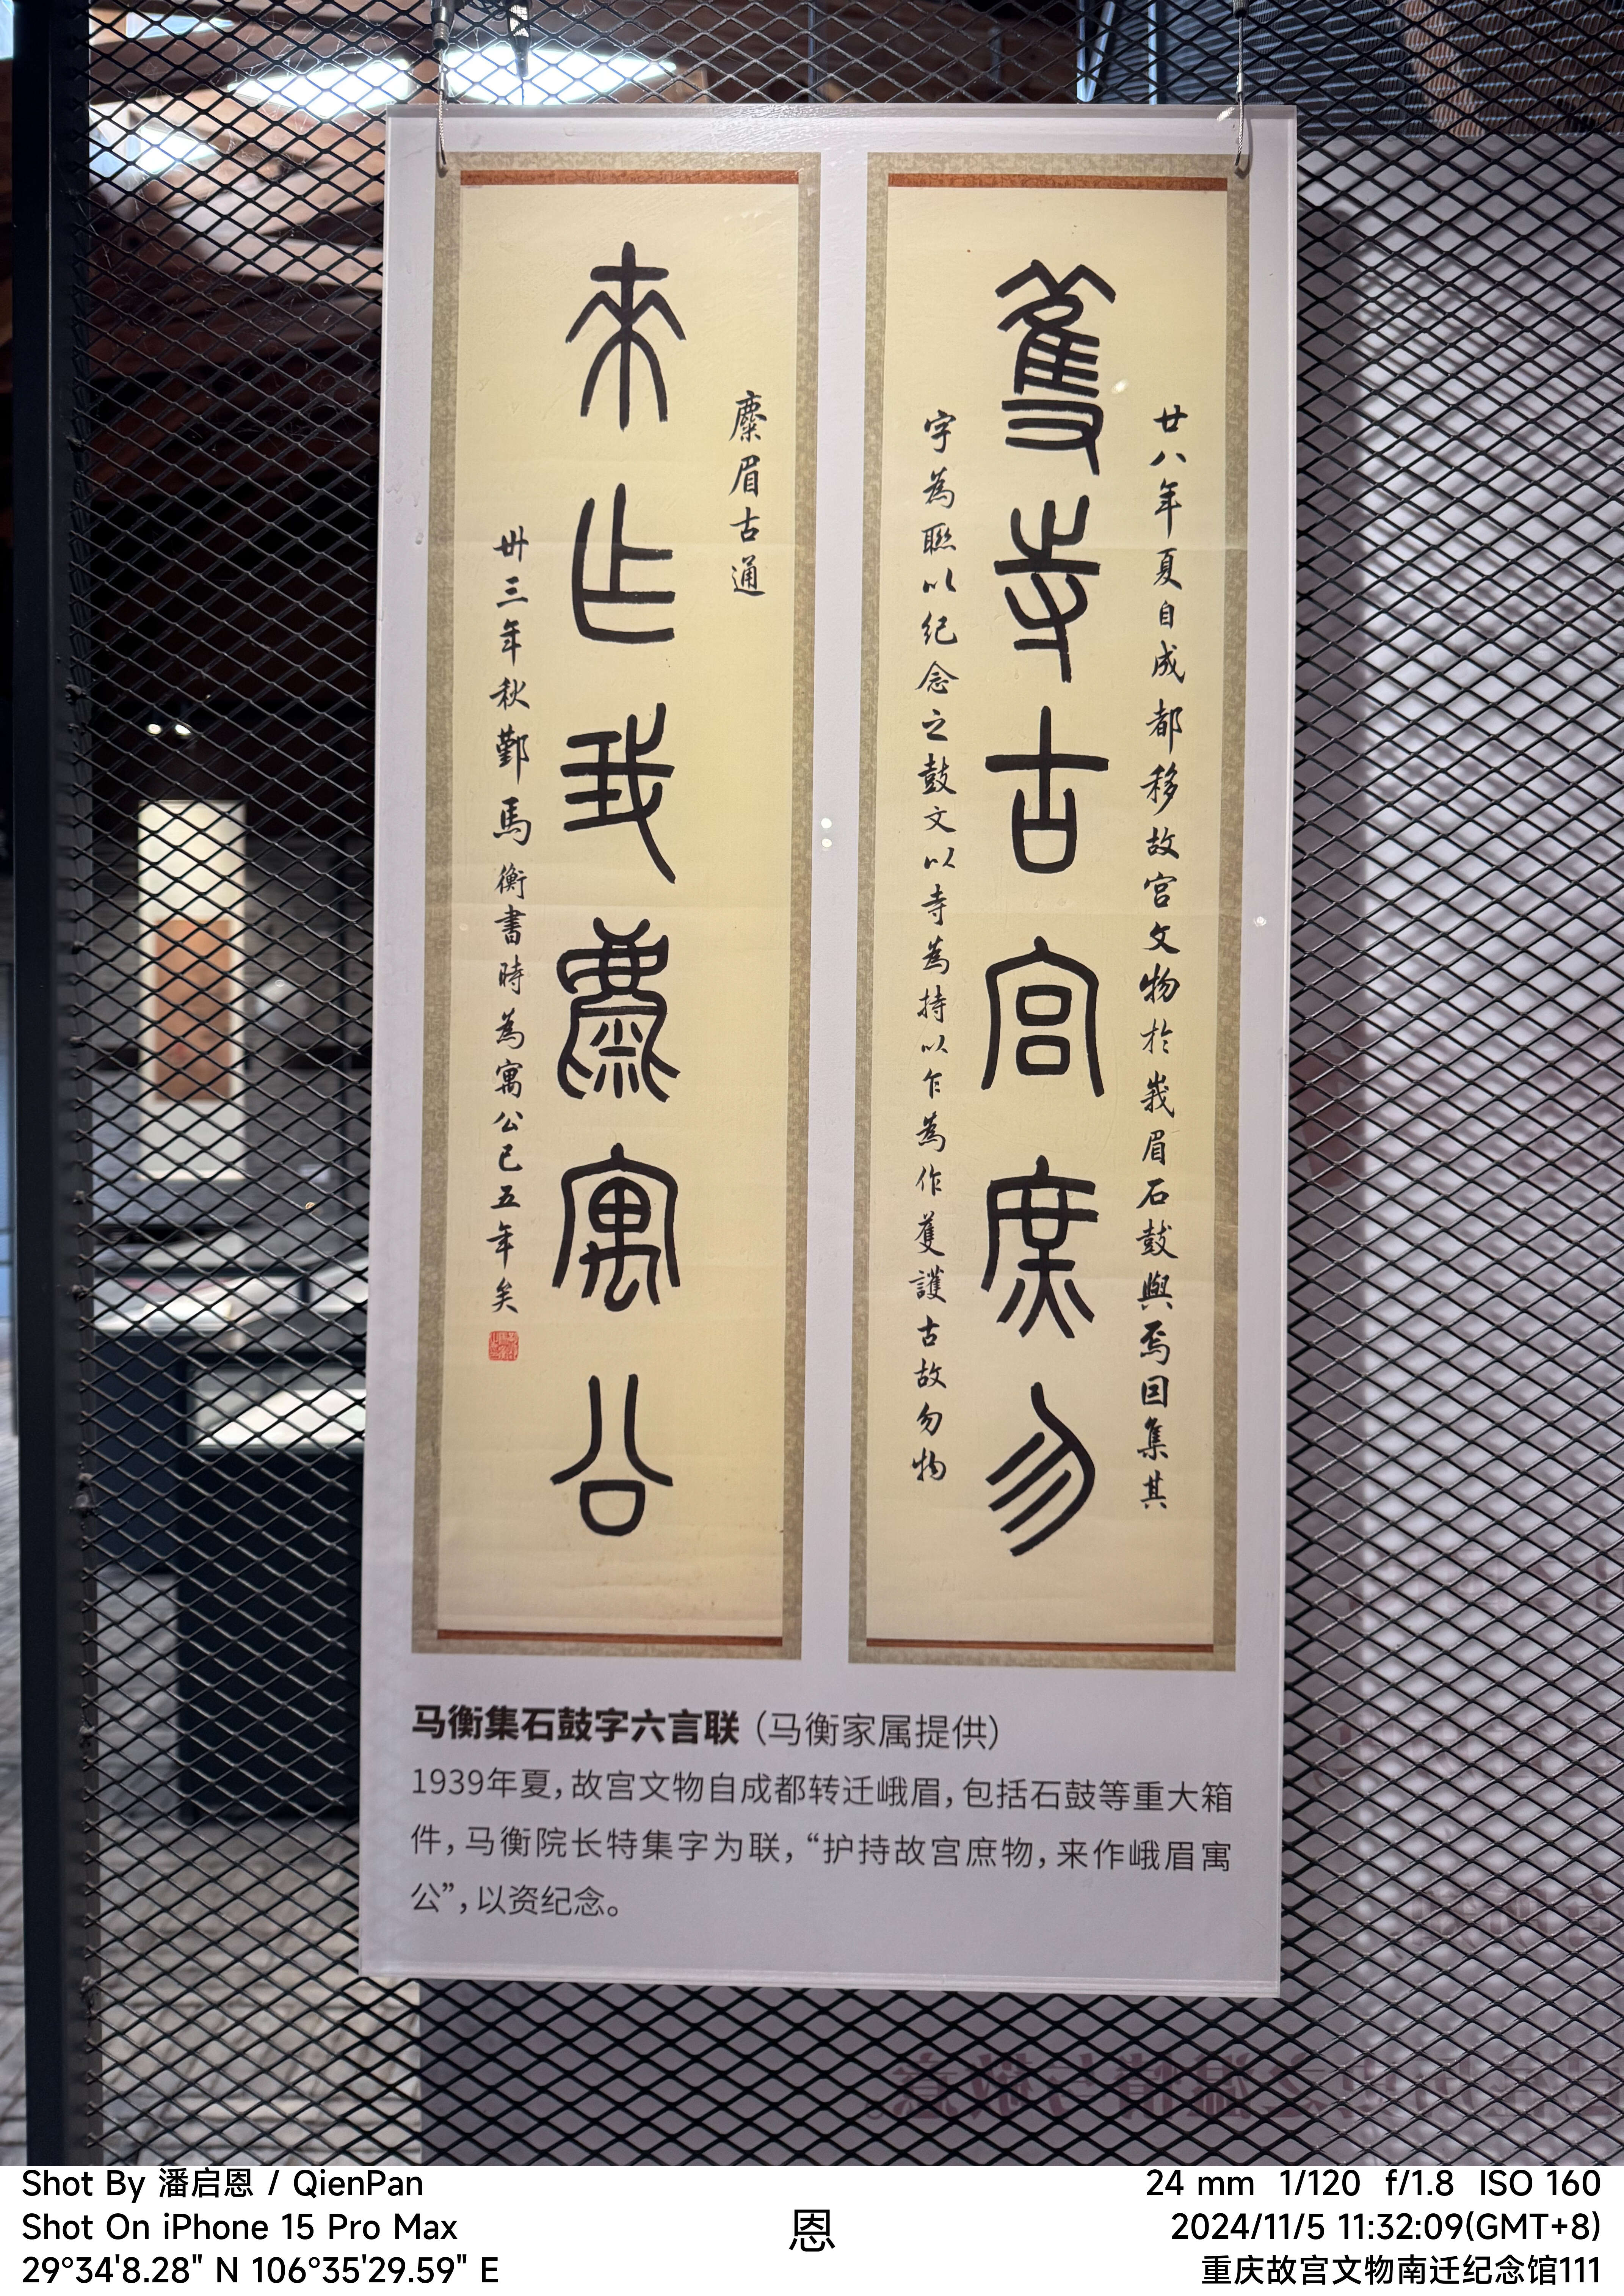 廿八年夏自成都移故宫文物於峩眉石鼓與焉囙集其
蒦寺古宫庶勿
字為聯以紀念之鼓文以寺為持以乍為作蒦護古故勿物
麋眉古通
來乍我麋寓公
卅三年秋鄞馬衡書時為寓公已五年矣
马衡集石鼓字六言联（马衡家属提供）
1939年夏，故宫文物自成都转迁峨眉，包括石鼓等重大箱
件，马衡院长特集字为联，“护持故宫庶物，来作峨眉寓
公”，以资纪念。
Shot By 潘启恩 / QienPan
Shot On iPhone 15 Pro Max
29°34'8.28" N 106°35'29.59" E
恩
24 mm 1/120 f/1.8 ISO 160
2024/11/5 11:32:09(GMT+8)
重庆故宫文物南迁纪念馆111